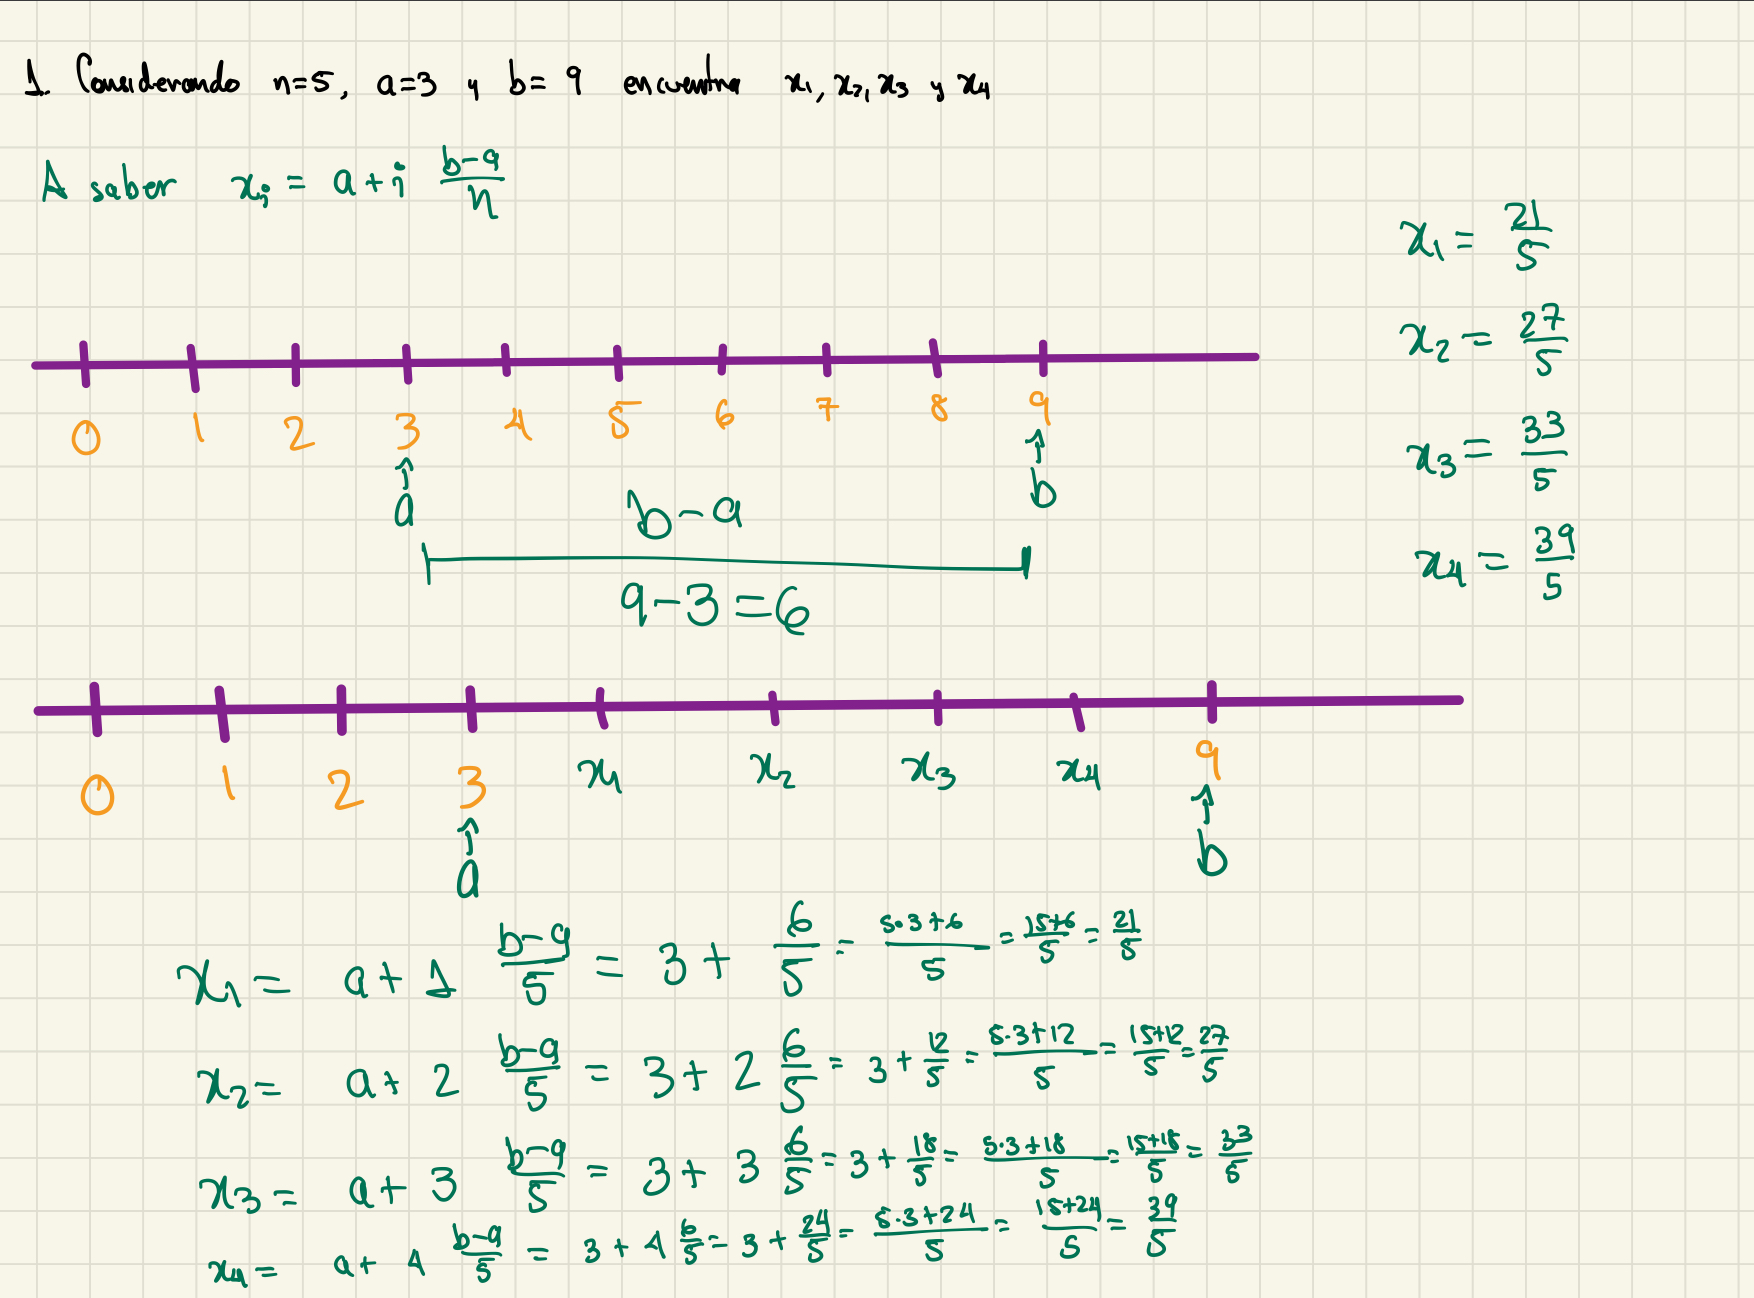 1. Considerando n=5, a=3 y b= 9 encuentra x₁, x₂, x₃ y x₄
A saber xᵢ = a+i (b-a)/n
x₁ = 21/5
x₂ = 27/5
x₃ = 33/5
x₄ = 39/5
0 1 2 3 4 5 6 7 8 9
↑ ↑
a b
b-a
9-3=6
0 1 2 3 x₁ x₂ x₃ x₄ 9
↑ ↑
a b
x₁ = a+ 1 (b-a)/5 = 3+ 6/5 = (5·3+6)/5 = (15+6)/5 = 21/5
x₂ = a+ 2 (b-a)/5 = 3+ 2 6/5 = 3 + 12/5 = (5·3+12)/5 = (15+12)/5 = 27/5
x₃ = a+ 3 (b-a)/5 = 3+ 3 6/5 = 3 + 18/5 = (5·3+18)/5 = (15+18)/5 = 33/5
x₄ = a+ 4 (b-a)/5 = 3 + 4 6/5 = 3 + 24/5 = (5·3+24)/5 = (15+24)/5 = 39/5